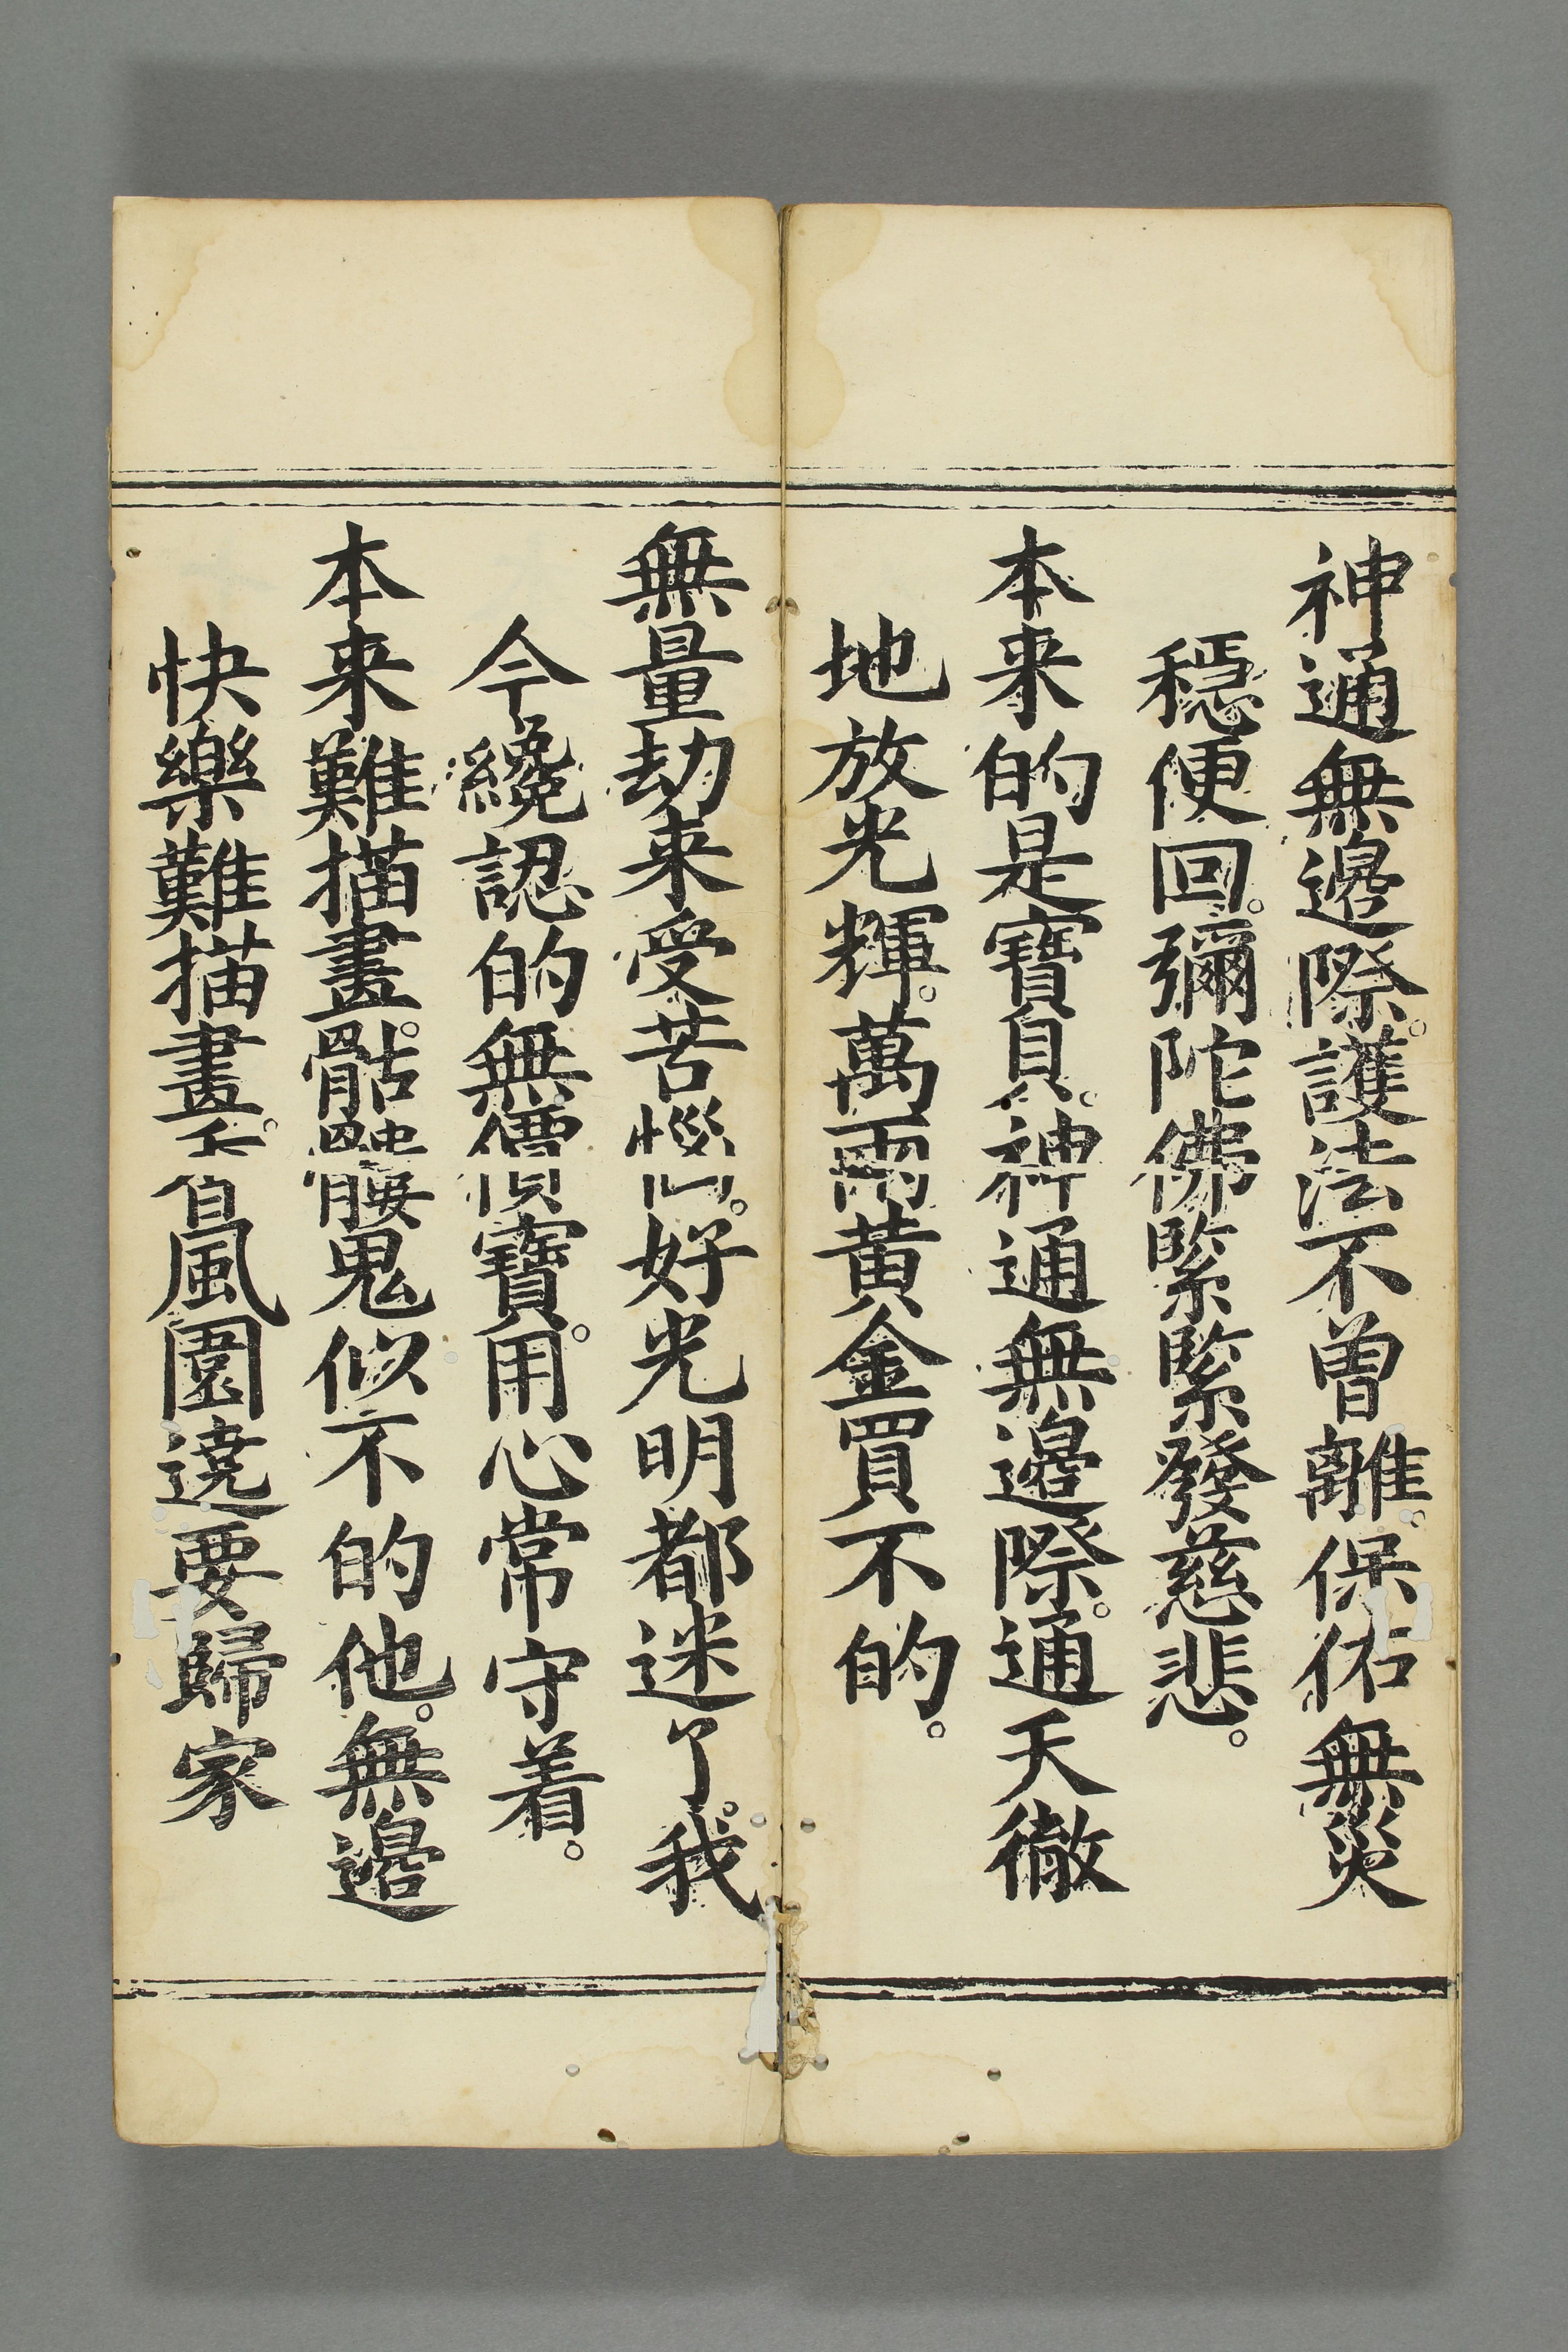 神通無邉際。護法不曽離。保佑無災
穩便回。彌陀佛緊緊發慈悲。
本来的是寶貝。神通無邉際。通天徹
地放光輝。萬兩黄金買不的。
無量劫来受苦惱。好光明都迷了。我
今纔認的無價寶。用心常守着。
本来難描畫。骷髏鬼似不的他。無邉
快樂難描畫。風園遶要歸家